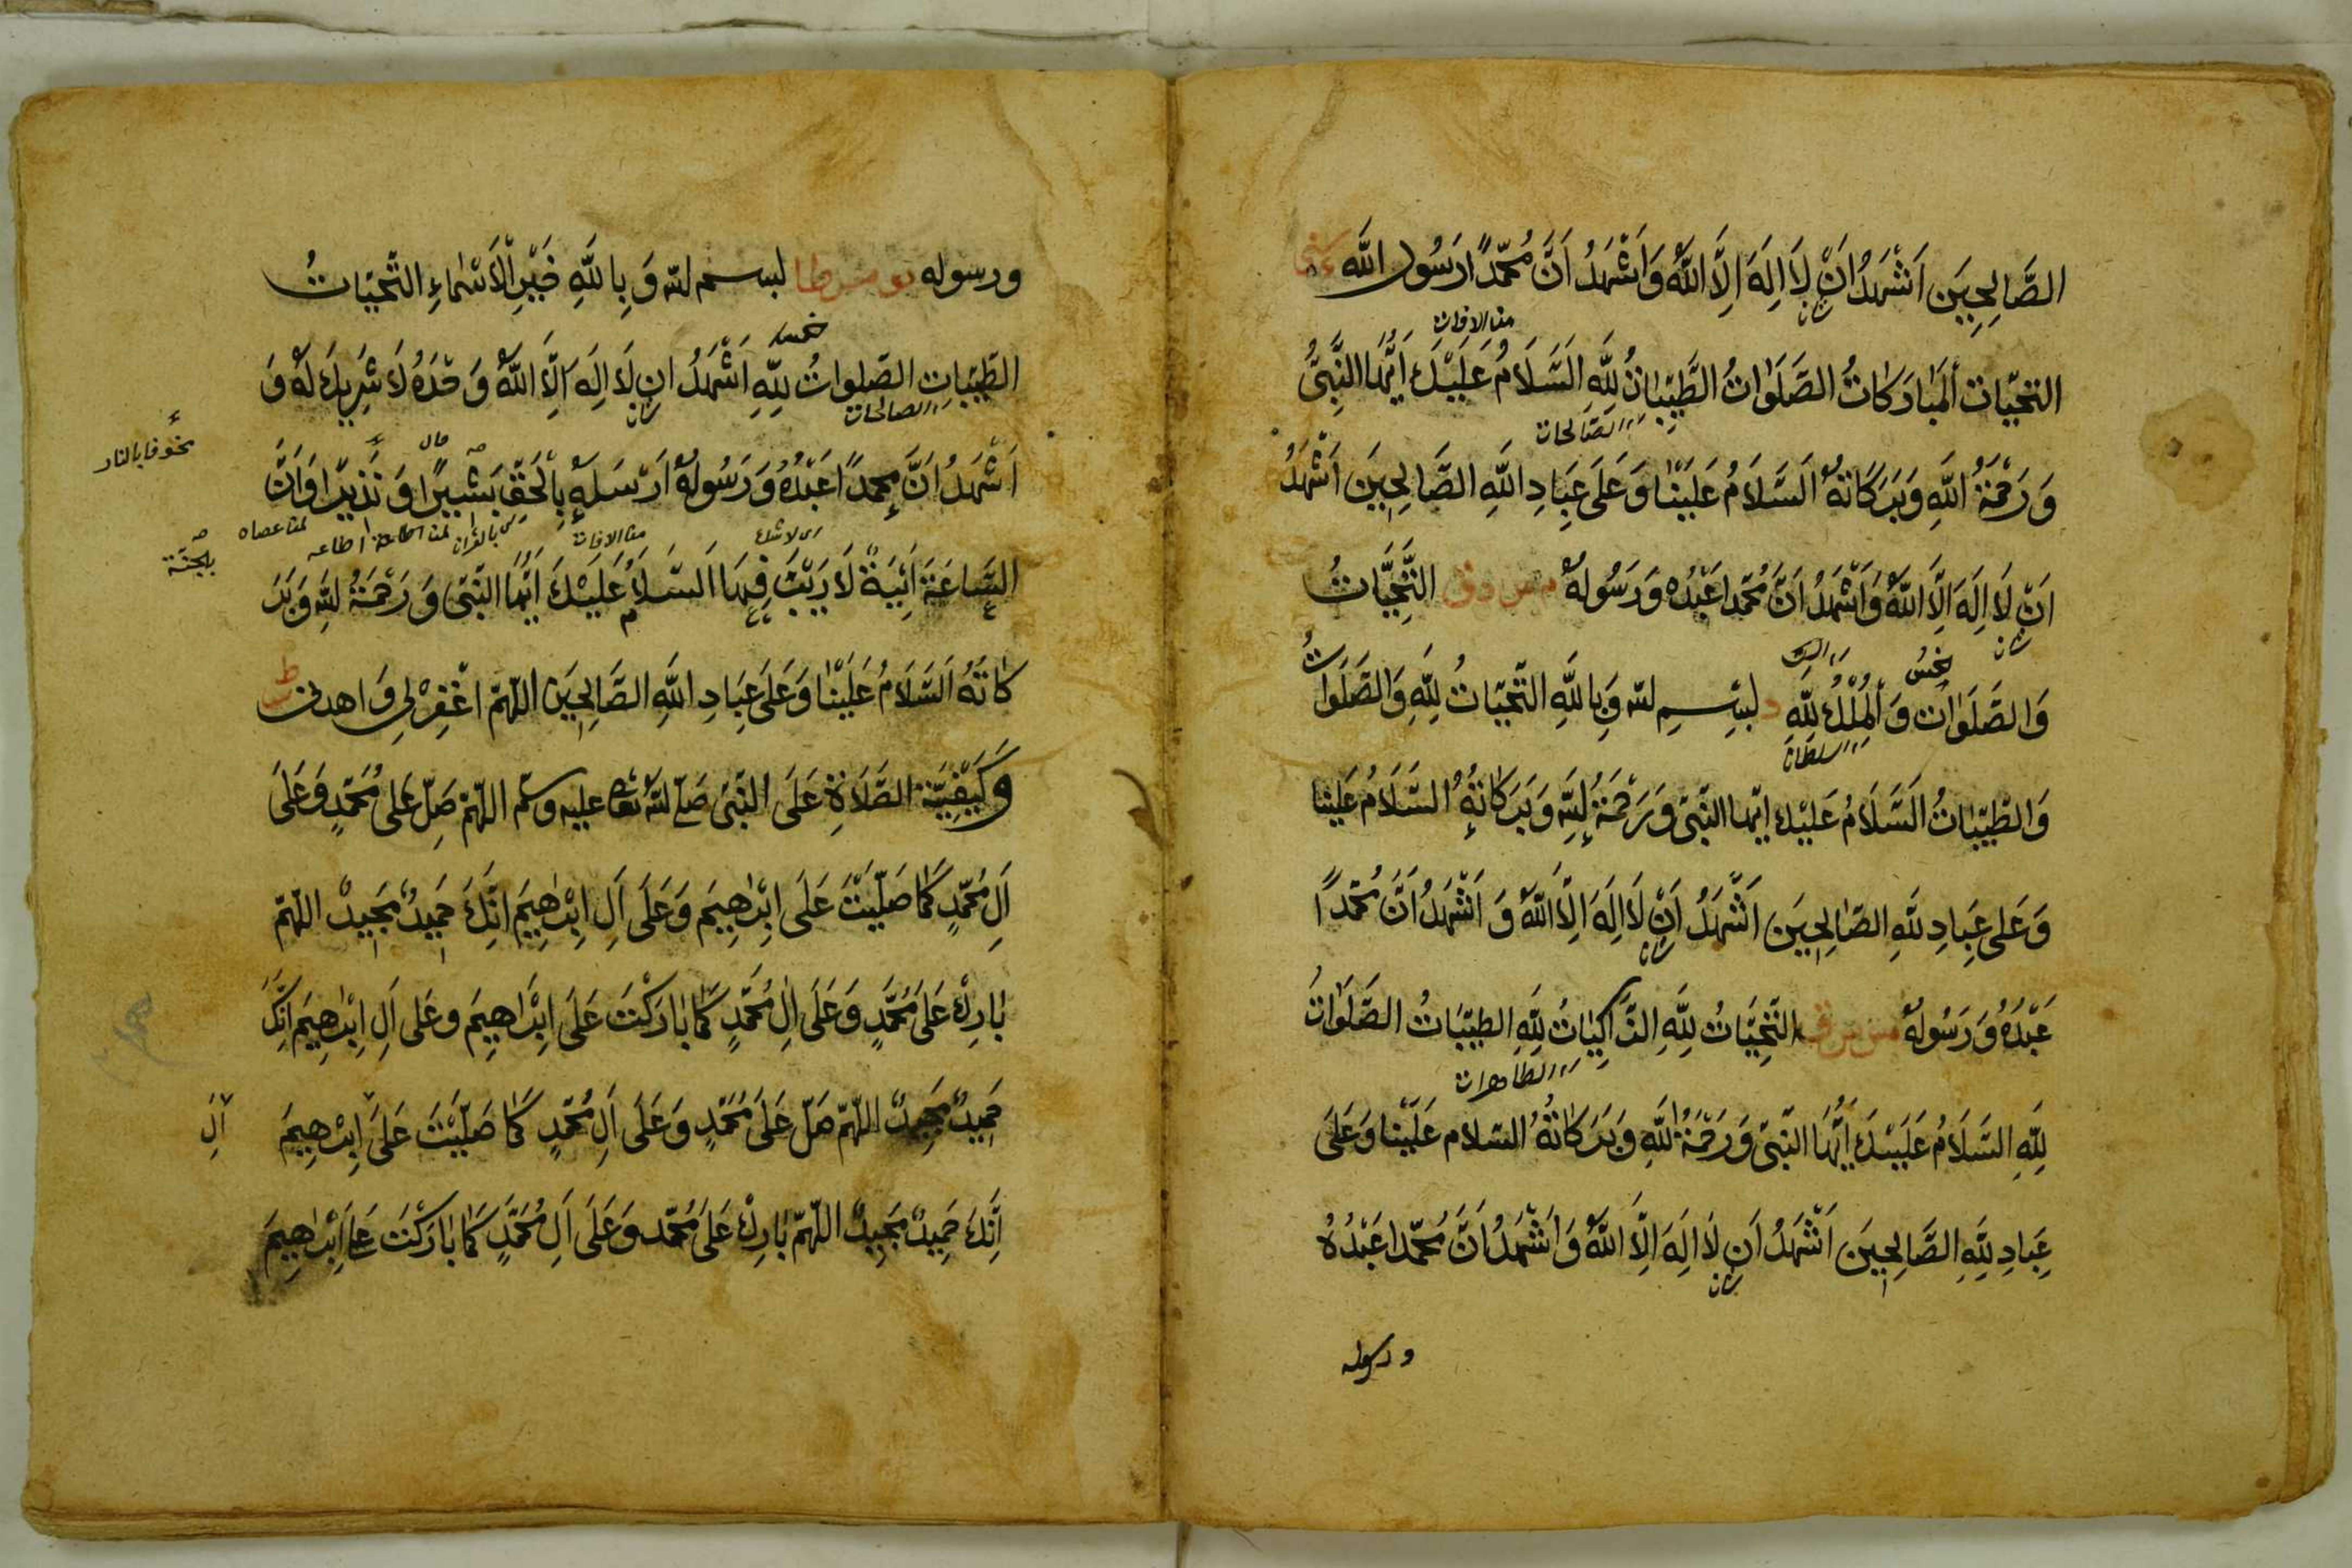 الصَّالِحِينَ اَشْهَدُ اَنْ لَا اِلَهَ اِلَّا اللَّهُ وَاَشْهَدُ اَنَّ مُحَمَّدًا رَسُولُ اللَّه
من الافات
التَّحِيَّات اَلْمُبَارَكَاتُ الصَّلَوَاتُ الطَّيِّبَاتُ لِلَّهِ اَلسَّلَامُ عَلَيْكَ اَيُّهَا النَّبِيُّ
الصَّالحات
وَرَحْمَةُ اللَّهِ وَبَرَكَاتُهُ اَلسَّلَامُ عَلَيْنَا وَعَلَى عِبَادِ اللَّهِ الصَّالِحِينَ اَشْهَدُ
اَنْ لَا اِلَهَ اِلَّا اللَّهُ وَاَشْهَدُ اَنَّ مُحَمَّدا عَبْدُه وَرَسُولُهُ التَّحِيَّاتُ
وَالصَّلَوَات وَالْمُلْكُ لِلَّهِ د بِسْمِ اللّه وَبِاللَّهِ التَّحِيَّاتُ لِلَّهِ وَالصَّلَوَاتُ
السلطان
وَالطَّيِّبَاتُ اَلسَّلَامُ عَلَيْكَ ايّها النَّبِيّ وَرَحْمَةُ اللَّهِ وَبَرَكَاتُهُ اَلسَّلَامُ عَلَيْنا
وَعَلى عِبَادِ اللَّهِ الصَّالِحِينَ اَشْهَدُ اَنْ لَا اِلَهَ اِلَّا اللَّهُ وَ اَشْهَدُ اَنَّ مُحَمَّدًا
عَبْدُهُ وَرَسُولُهُ التَّحِيَّاتُ لِلَّهِ الزَّاكِيَاتُ لِلَّهِ الطيِّبَاتُ الصَّلَوَاتُ
الطاهرات
لِلَّهِ السَّلَامُ عَلَيْكَ اَيُّهَا النَّبِيّ وَرَحْمَةُ اللَّهِ وَبَرَكَاتُهُ السلام عَلَيْنَا وَعَلَى
عِبَادِ اللَّهِ الصَّالِحِينَ اَشْهَدُ اَن لَا اِلَهَ اِلَّا اللَّهُ وَاَشْهَدُ اَنَّ مُحَمَّدا عَبْدُهُ
ورسوله
ورسوله بسم اللّه وَبِاللَّهِ خَيْرِ الْاَسْمَاءِ التَّحِيَّاتُ
الطَّيِّبَات الصَّلوات لِلَّهِ اَشْهَدُ ان لَا اِلَهَ اِلَّا اللَّهُ وَحْدَهُ لَا شَرِيكَ لَهُ وَ
الصالحات
اَشْهَدُ اَنَّ مُحَمَّدًا عَبْدُهُ وَرَسُولُهُ اَرْسَلَهُ بِالْحَقِّ بَشِيرًا وَنَذِيرًا وَاَنَّ
مخوفا بالنار
لمن عصاه
من الافات
بالجنّة
السَّاعَةَ اٰتِيَةٌ لَا رَيْبَ فِيهَا اَلسَّلَامُ عَلَيْكَ اَيُّهَا النَّبِيّ وَرَحْمَةُ اللَّهِ وَبَرَ
كَاتُهُ اَلسَّلَامُ عَلَيْنَا وَعَلَى عِبَادِ اللَّهِ الصَّالِحِينَ اللَّهُمَّ اغْفِرْ لِي وَاهدنى
وَكَيْفِيَّة الصَّلَاةِ عَلَى النَّبِيّ صَلّى اللّه تعالى عليه وسلّم اللّهمّ صَلِّ عَلى مُحَمَّدٍ وَعَلَى
اٰلِ مُحَمَّدٍ كَمَا صَلَّيْتَ عَلَى اِبْرٰهِيمَ وَعَلَى اٰلِ اِبْرٰهِيمَ اِنَّكَ حَمِيدٌ مَجِيدٌ اللّهمّ
بَارِكْ عَلَى مُحَمَّدٍ وَعَلَى اٰلِ مُحَمَّدٍ كَمَا بَارَكْتَ عَلَى اِبْرَاهِيمَ وعَلى اٰلِ اِبْرٰهِيمَ اِنَّكَ
حَمِيدٌ مَجِيدٌ اللّهمّ صَلّ عَلَى مُحَمَّدٍ وَعَلَى اٰلِ مُحَمَّدٍ كَمَا صَلَّيْتَ عَلَى اِبْرٰهِيمَ
اٰلِ
اِنَّكَ حَمِيدٌ مَجِيدٌ اللّهمّ بَارِكْ عَلَى مُحَمَّد وَعَلَى اٰلِ مُحَمَّدٍ كَمَا بَارَكْتَ عَلى اِبْرٰهِيمَ